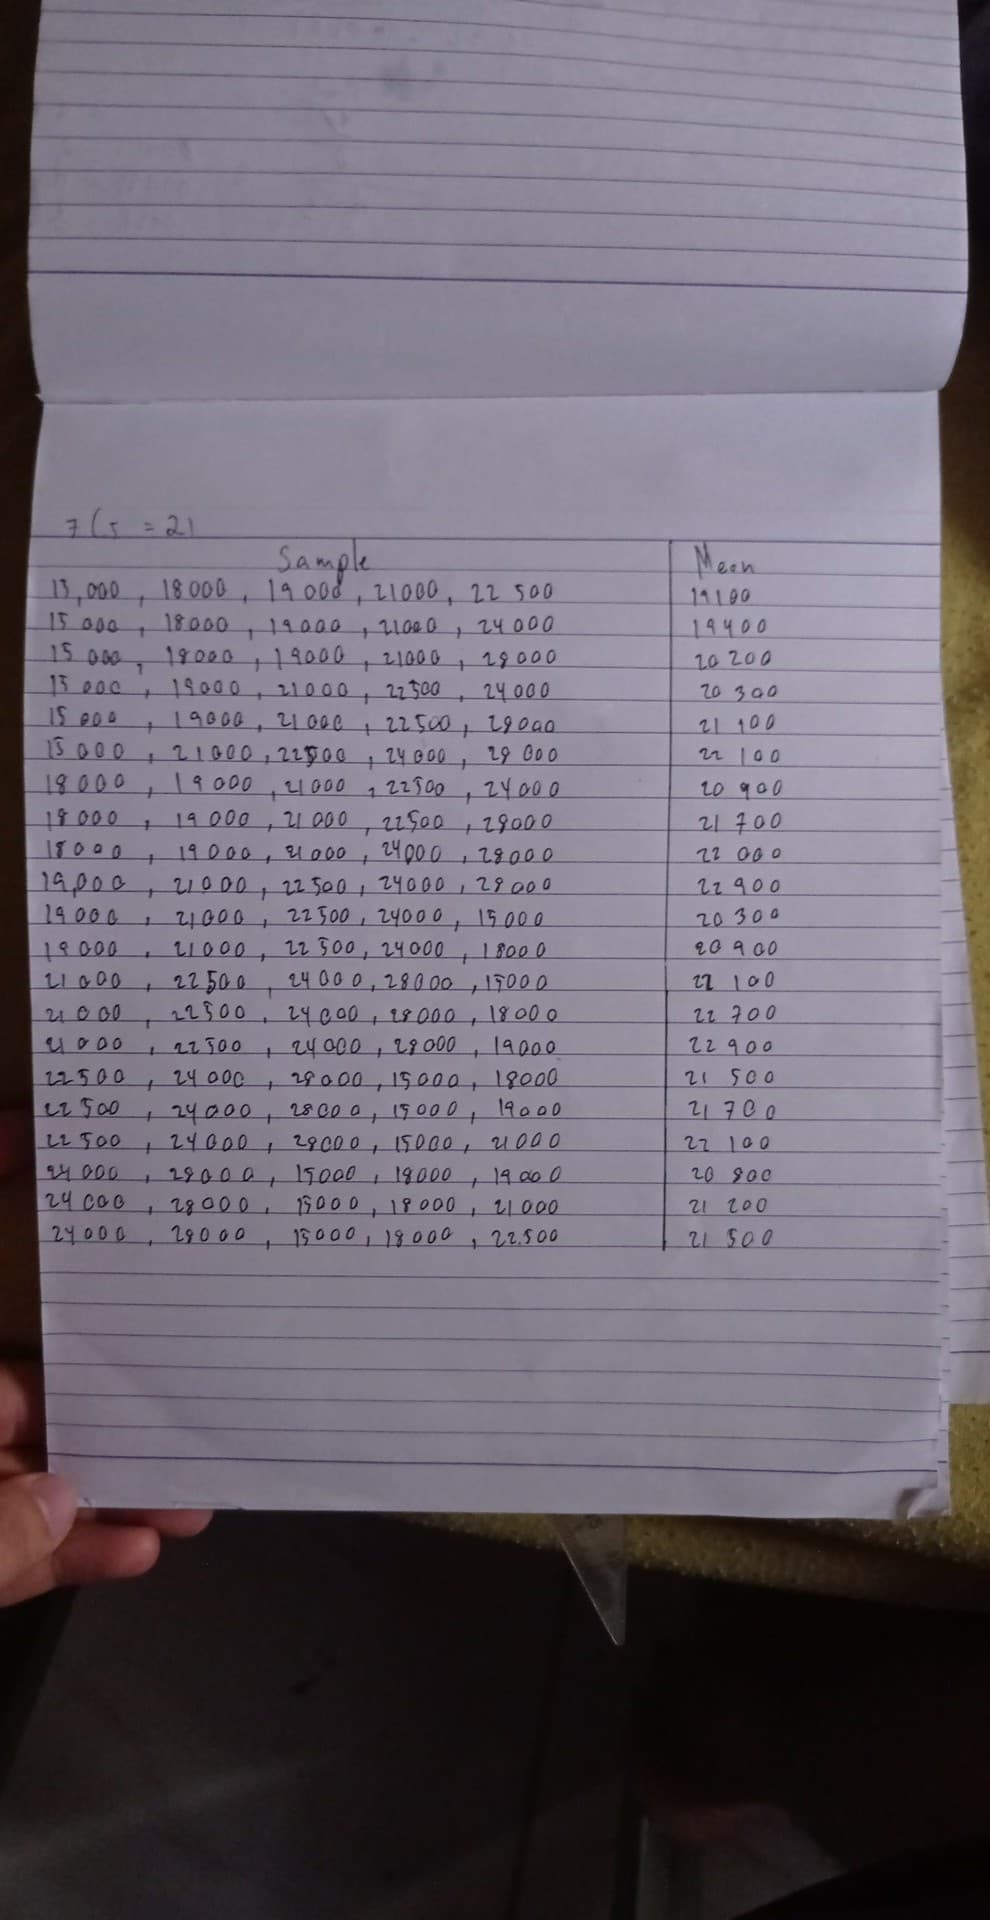 7C5 = 21
Sample Mean
15,000 , 18000 , 19000 , 21000 , 22 500 19100
15 000 , 18000 , 19000 , 21000 , 24000 19400
15 000 , 18000 , 19000 , 21000 , 28000 20 200
15 000 , 19000 , 21000 , 22500 , 24000 20 300
15 000 , 19000 , 21000 , 22500 , 28000 21 100
15000 , 21000 , 22500 , 24000 , 28 000 22 100
18000 , 19000 , 21000 , 22500 , 24000 20 900
18000 , 19000 , 21000 , 22500 , 28000 21 700
18000 , 19000 , 21000 , 24000 , 28000 22 000
19,000 , 21000 , 22500 , 24000 , 28000 22 900
19000 , 21000 , 22500 , 24000 , 15000 20 300
19000 , 21000 , 22 500 , 24000 , 18000 20 900
21000 , 22500 , 24000 , 28000 , 15000 22 100
21000 , 22500 , 24000 , 28000 , 18000 22 700
21000 , 22500 , 24000 , 28000 , 19000 22 900
22500 , 24000 , 28000 , 15000 , 18000 21 500
22500 , 24000 , 28000 , 15000 , 19000 21 700
22500 , 24000 , 28000 , 15000 , 21000 22 100
24000 , 28000 , 15000 , 18000 , 19000 20 800
24000 , 28000 , 15000 , 18000 , 21000 21 200
24000 , 28000 , 15000 , 18000 , 22.500 21 500